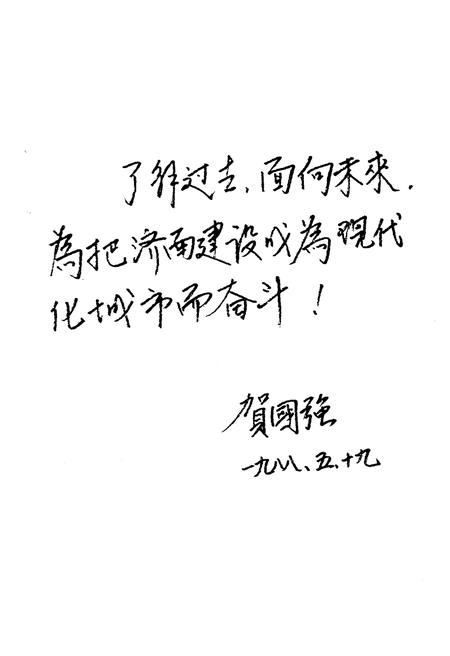 了解过去，面向未來．
為把济南建设成為现代
化城市而奋斗！
賀國強
一九八八、五、十九